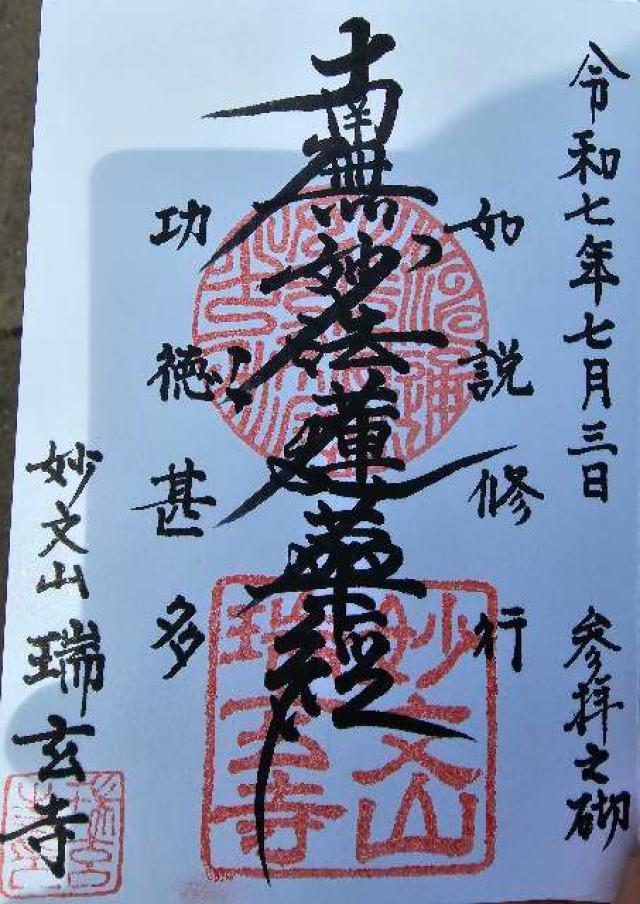 令和七年七月三日 参拝之砌
如説修行
南無妙法蓮華経
功徳甚多
妙文山 瑞玄寺
妙文山
瑞玄寺